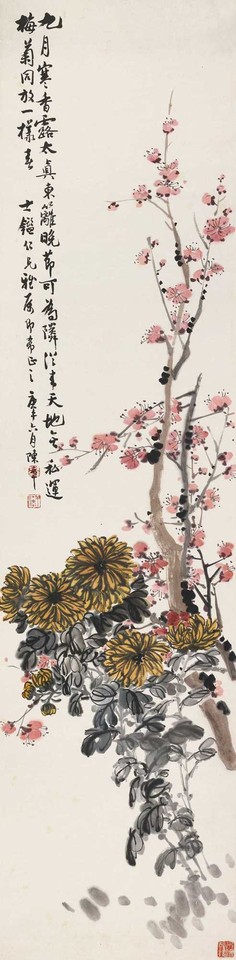 九月寒香露太真東籬晚節可為隣從來天地無私運
梅菊同放一樣春
士鎰仁兄雅屬即希正之 庚午六月陳年